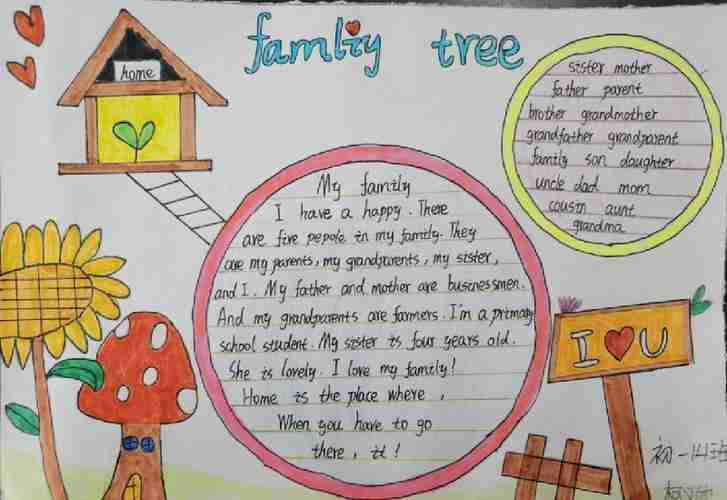 famliy tree
home
sister mother
father parent
brother grandmother
grandfather grandparent
family son daughter
uncle dad mom
cousin aunt
grandma
My family
I have a happy. There
are five pepole in my family. They
are my parents, my grandparents, my sister,
and I. My father and mother are businessmen.
And my grandparents are farmers. I'm a primary
school student. My sister is four years old.
She is lovely. I love my family!
Home is the place where,
When you have to go
there, it!
I U
初一14班